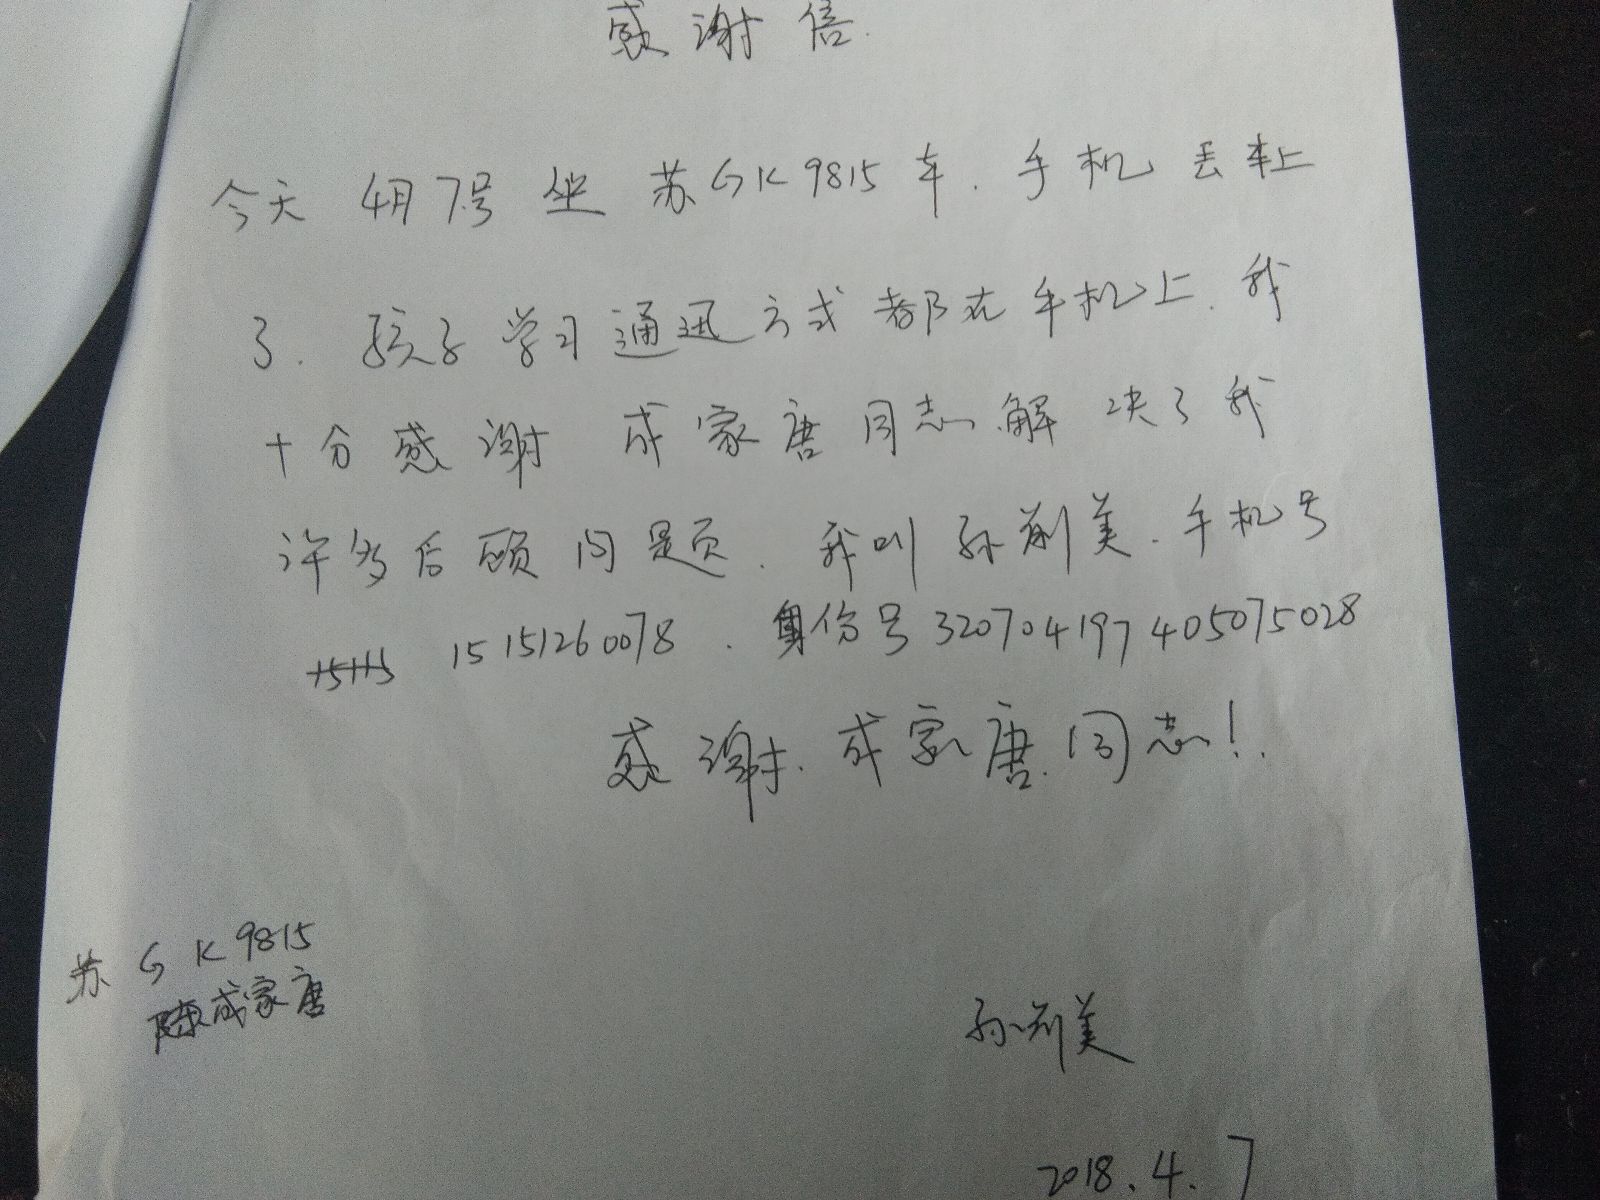 感谢信
今天 4月7号 坐 苏GK9815车.手机丢车上
了.孩子学习通迅方式都在手机上.我
十分感谢 成家唐同志解决了我
许多后顾问题.我叫孙荆美.手机号
15151260078.身份号320704197405075028
感谢.成家唐.同志!.
苏GK9815
陈成家唐
孙荆美
2018.4.7